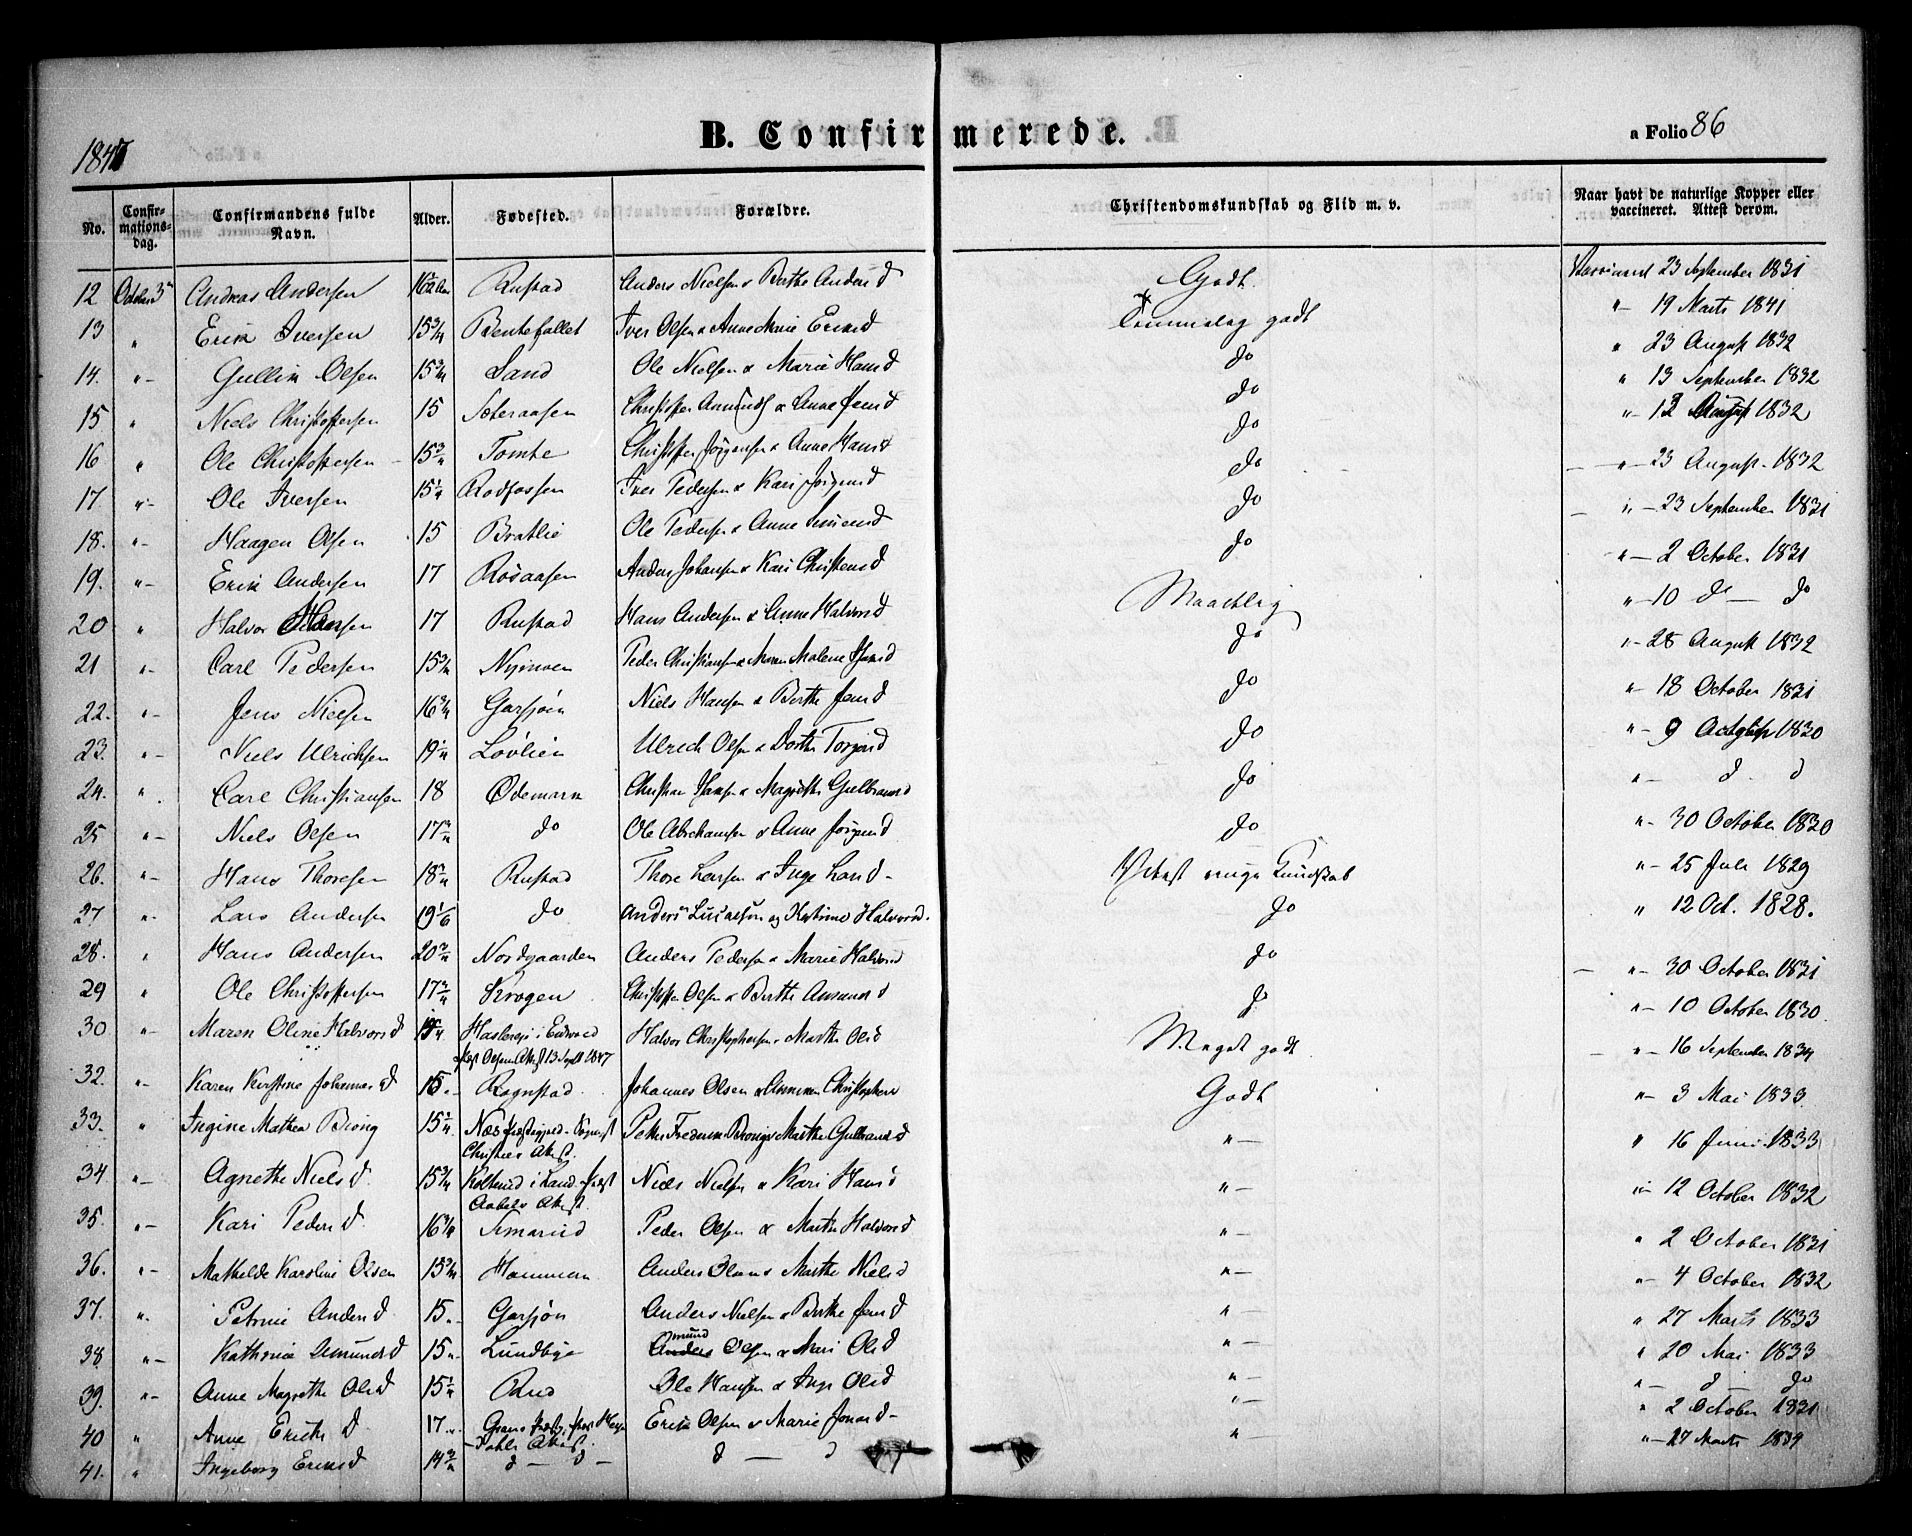 1847
B. Confirmerede.
a Folio 86
No. Confirmationsdag. Confirmandens fulde Navn. Alder. Fødested. Forældre. Christendomskundskab og Flid m. v. Naar havt de naturlige Kopper eller vaccineret. Attest derom.
12 October 3 Andreas Andersen 16 Rustad Anders Nielsen & Berthe Andersd Godt. Vaccineret 23 September 1831
13 " Erik Iversen 15 3/4 Iver Olsen & Anne Marie Ericsd Temmelig godt " 19 Marts 1841
14. "- Gullik Olsen 15 3/4 Sand Ole Nielsen & Marie Hansd do " 23 August 1832
15 " Niels Christoffersen 15 Sæteraasen Christoffer Amunds & Anne Jensd do " 13 September 1832
16 " Ole Christoffersen 15 3/4 Tomte Christoffer Jørgensen & Anne Hansd do "- 12 August 1832
17. "- Ole Iversen 15 1/4 Rodfossen Iver Pedersen & Kari Jørgensd do "- 23 August 1832
18. "- Haagen Olsen 15 Bratlie Ole Pedersen & Anne Simensd do "- 23 September 1831
19. "- Erik Andersen 17 Rosaasen Anders Johansen & Kari Christensd do "- 2 October 1831
20 " Halvor Hansen 17 Rustad Hans Andersen & Anne Halvorsd Maadelig "- 10 do - do
21 "- Carl Pedersen 15 3/4 Nymoen Peder Christiansen & Maren Malene Hansd do "- 28 August 1832
22. "- Jens Nielsen 16 3/4 Garsjøen Niels Hansen & Berthe Jensd do "- 18 October 1831
23. "- Niels Ulrichsen 19 1/4 Løvlien Ulrich Olsen & Dorthe Torgersd do "- 9 October 1830
24. " Carl Christiansen 18 Ødemark Christian Hansen & Magrethe Gulbransd do "- d d
25 "- Niels Olsen 17 3/4 do Ole Abrahamsen & Anne Jørgensd do "- 30 October 1830
26. "- Hans Thoresen 18 3/4 Rustad Thore Larsen & Inge Larsd Yderst ringe Kundskab "- 25 Juli 1829
27 "- Lars Andersen 19 1/6 do Anders Lucassen og Katrine Halvorsd. do " 12 Oct. 1828.
28. " Hans Andersen 20 3/4 Nordgaarden Anders Pedersen & Marie Halvorsd do "- 30 October 1831
29 " Ole Christoffersen 17 3/4 Skogen Christoffer Olsen & Berthe Amundsd do "- 10 October 1830
30 "- Maren Oline Halvorsd 15 i Eidsvold Præst Olsens Attest 13 Sept 1847 Halvor Christophersen & Marthe Olsd Meget godt "- 16 September 1834
32. "- Karen Kirstine Johannesd 15 Rognstad Johannes Olsen & Christophersd Godt "- 3 Mai 1833
33. " Ingine Mathea Biong 15 1/4 Næs Præstegjeld - Christies Attest. Peter Frederik Biong & Marthe Gulbrandsd "- " 16 Juni 1833
34 "- Agnethe Nielsd 15 3/4 i Land - Præst Aabels Attest. Niels Nielsen & Kari Hansd "- "- 12 October 1832
35. "- Kari Pedersd 16 3/4 Simarud Peder Olsen & Marthe Halvorsd "- " 2 October 1831
36. "- Mathilde Karoline Olsen 15 3/4 Hammeren Anders Olsen & Marthe Nielsd "- "- 4 October 1832
37. ". Petrine Andersd 15 Garsjøn Anders Nielsen & Berthe Jensd "- " 27 Marts 1833
38 "- Kathrine Amundsd 15 Lundbye Anders mund Olsen & Mari Olsd "- " 20 Mai 1833
39. "- Anne Magrethe Olsd 15 1/4 Rud Ole Hansen & Inge Olsd "- "- d - do
40 " Anne Erichsd 17 Grans Præstg. Attest. Erik Olsen & Marie Jonsd - "- " 2 October 1831
41. " Ingeborg Ericsd 14 3/4 d - d - d - d "- "- 27 Marts 1839